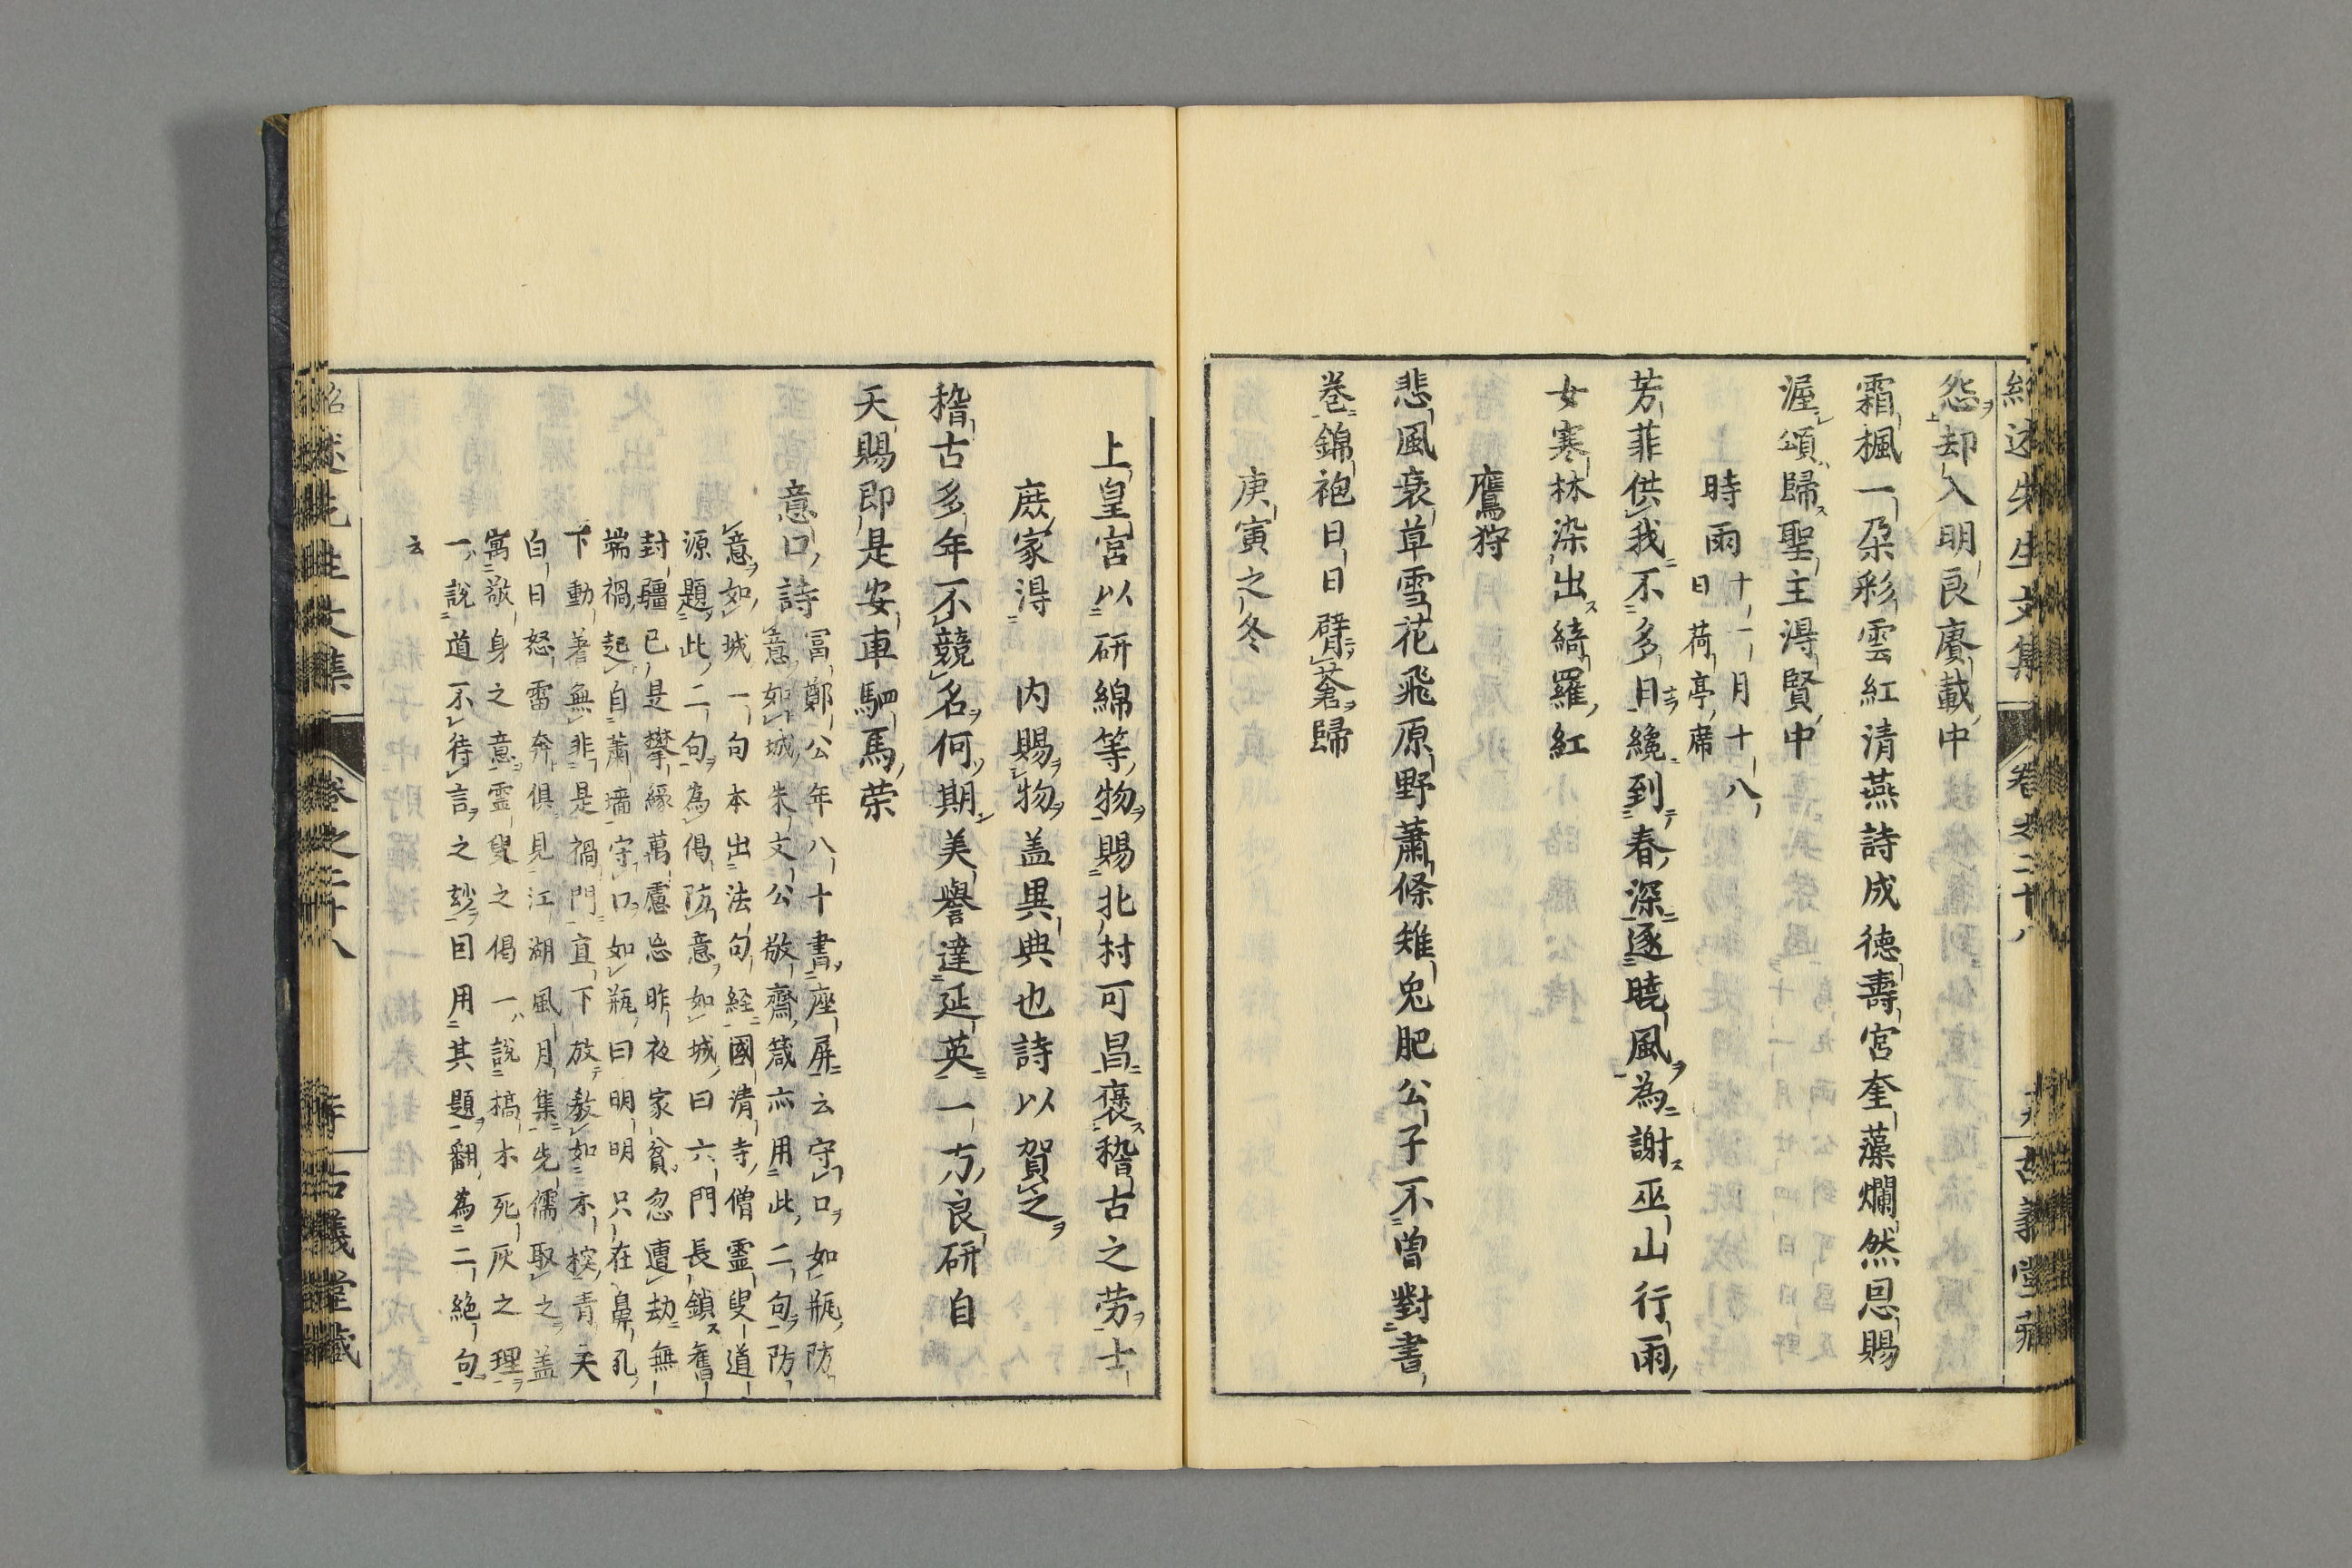 紹述先生文集
卷之二十八
古義堂藏
怨却入明良賡載中
霜楓一朶彩雲紅清燕詩成德壽宮奎藻爛然恩賜
渥頌歸聖主得賢中
時雨十一月十八
日荷亭席
芳菲供我不多日纔到春深逐曉風為謝巫山行雨
女寒林染出綺羅紅
鷹狩
悲風衰草雪花飛原野蕭條雉兔肥公子不曾對書
卷錦袍日日臂蒼歸
庚寅之冬
上皇宮以研綿等物賜北村可昌褒稽古之劳士
庶家得內賜物盖異典也詩以賀之
稽古多年不競名何期美譽達延英一方良研自
天賜即是安車駟馬荣
意口詩
冨鄭公年八十書座屏云守口如瓶防
意如城朱文公敬齋箴亦用此二句防
意如城一句本出法句経國清寺僧霊叟道
源題此二句為偈防意如城曰六門長鎖舊
封疆已是攀緣萬慮忘昨夜家貧忽遭劫無
端禍起自蕭墻守口如瓶曰明明只在鼻孔
下動着無非是禍門直下放教如木㮇青天
白日怒雷奔俱見江湖風月集先儒取之盖
寓敬身之意霊叟之偈一說槁木死灰之理
一說道不待言之玅因用其題翻為二絶句
云
紹述先生文集
卷之二十八
古義堂藏